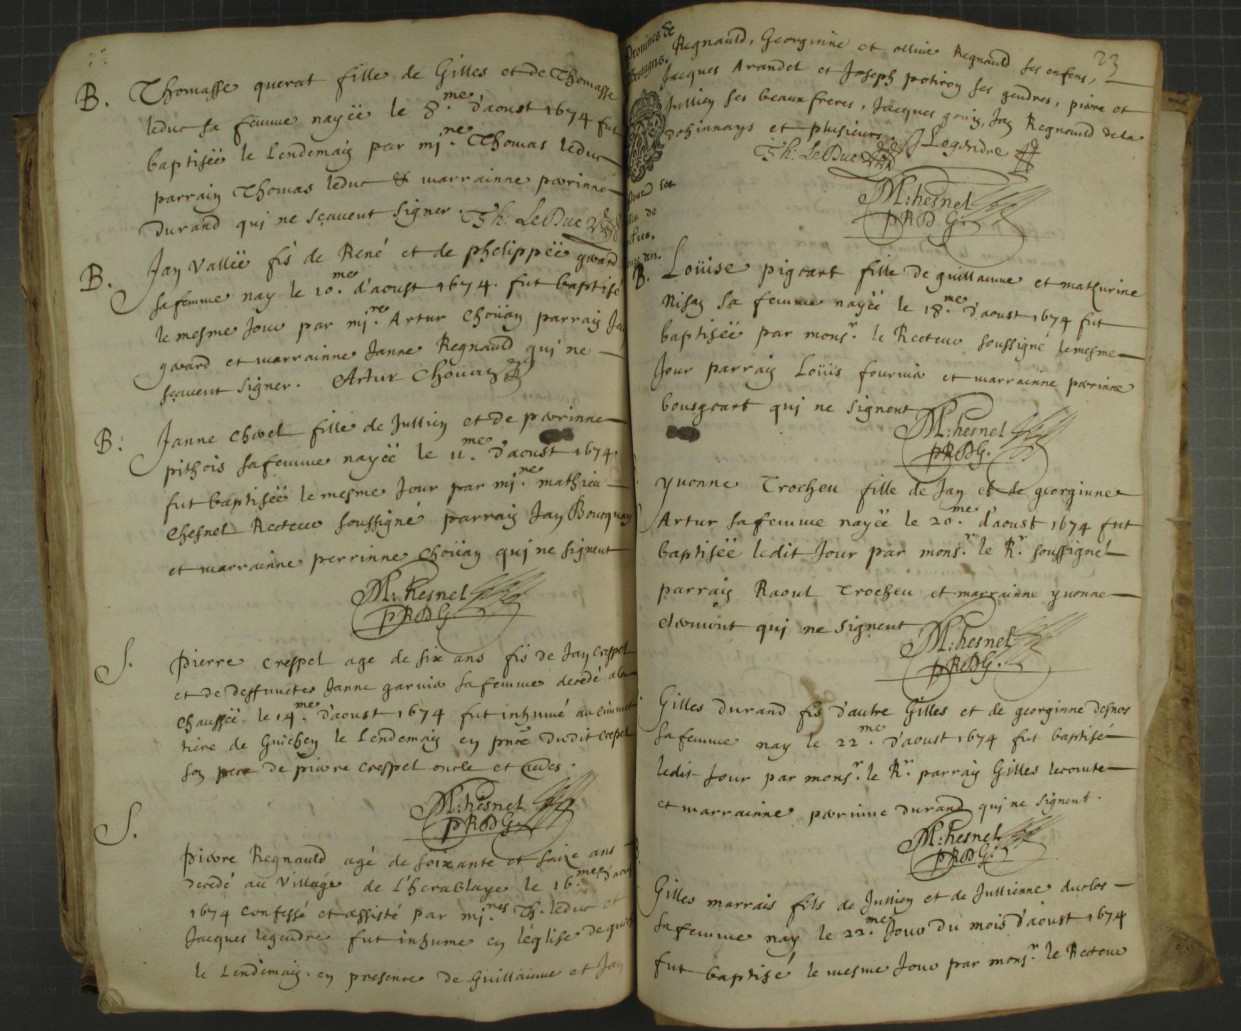 B. Thomasse querat fille de Gilles et de Thomasse
leduc sa femme nayëe le 8.me d'aoust 1674 fut
baptisëe le Lendemain par mi.re Thomas leduc
parrain Thomas leduc & marrainne perrinne
durand qui ne sçavent signer. Th. LeDuc
B. Jan Vallëe fis de René et de phelippëe gavard
sa femme nay le 10.me d'aoust 1674. fut baptisé
le mesme Jour par mi.re Artur Choüan parrain Jan
gavard et marrainne Janne Regnauld qui ne
sçavent signer. Artur Choüan
B: Janne chevel fille de Jullien et de perrinne
pithois sa femme nayëe le 11.me d'aoust 1674.
fut baptisëe le mesme Jour par mi.re mathieu
Chesnel Recteur soussigné parrain Jan
et marrainne perrinne Choüan qui ne signent
M: hesnel
PRDG.
S. Pierre Crespel age de six ans fis de Jan Crespel
et de deffuncte Janne garnier sa femme decedé a la
Chaussëe le 14.me d'aoust 1674 fut inhumé au cimet
tière de Guichen le Lendemain en pnce dudit Crespel
son pere de pierre Crespel oncle et autres.
M: hesnel
PRDG.
S. Pierre Regnauld agé de soixante et saize ans
decedé au Village de L'herablaye le 16.me d'aoust
1674 Confessé et assisté par mi.res Th. leduc et
Jacques legendre fut inhumé en l'eglise de guichen
le Lendemain en presence de Guillaume et Jan
23
Regnauld, Georginne et ollive Regnauld ses enfens,
Jacques Arandel et Joseph potiron ses gendres, pierre et
Jullien ses beaux freres, Jacques Jan Regnauld de la
et plusieurs.
Th. LeDuc J Legendre
M: hesnel
PRDG.
B. Loüise pigeart fille de guillaume et mathurine
Nisan sa femme nayëe le 18.me d'aoust 1674 fut
baptisëe par mons.r le Recteur soussigné lemesme
Jour parrain Loüis fournier et marrainne perrinne
bousgeart qui ne signent
M: hesnel
PRDG.
Yvonne Trocheu fille de Jan et de georginne
Artur sa femme nayëe le 20.me d'aoust 1674 fut
baptisëe ledit Jour par mons.r le R.r soussigné
parrain Raoul Trocheu et marrainne yvonne
qui ne signent
M: hesnel
PRDG.
Gilles durand fis d'autre Gilles et de georginne desnos
sa femme nay le 22.me d'aoust 1674 fut baptisé
ledit Jour par mons.r le R.r parrain Gilles lecomte
et marrainne perrinne durand qui ne signent.
M: hesnel
PRDG.
Gilles marrais fils de Jullien et de Jullienne duclos
sa femme nay le 22.me Jour du mois d'aoust 1674
fut baptisé le mesme Jour par mons.r le Recteur